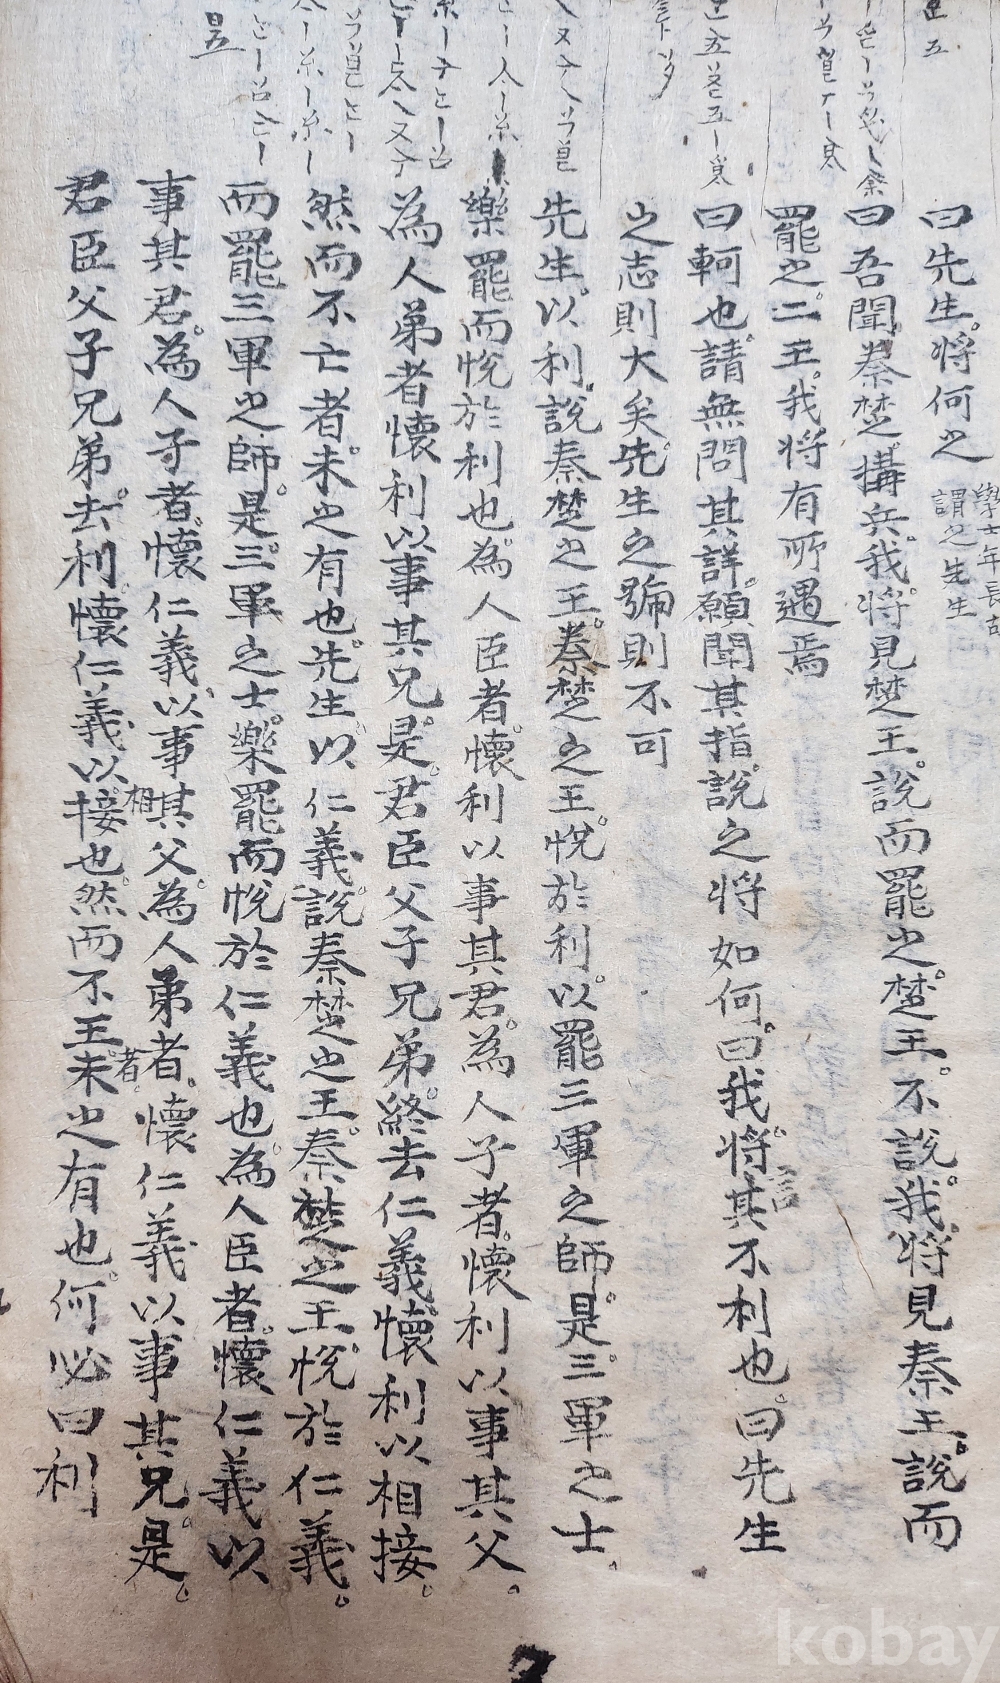 曰先生將何之
學士年長者
謂之先生
曰吾聞秦楚搆兵我將見楚王說而罷之楚王不說我將見秦王說而
罷之二王我將有所遇焉
曰軻也請無問其詳願聞其指說之將如何曰我將言其不利也曰先生
之志則大矣先生之號則不可
先生以利說秦楚之王秦楚之王悅於利以罷三軍之師是三軍之士
樂罷而悅於利也為人臣者懷利以事其君為人子者懷利以事其父
為人弟者懷利以事其兄是君臣父子兄弟終去仁義懷利以相接
然而不亡者未之有也先生以仁義說秦楚之王秦楚之王悅於仁義
而罷三軍之師是三軍之士樂罷而悅於仁義也為人臣者懷仁義以
事其君為人子者懷仁義以事其父為人弟者懷仁義以事其兄是
君臣父子兄弟去利懷仁義以相接也然而不王者未之有也何必曰利
kobay